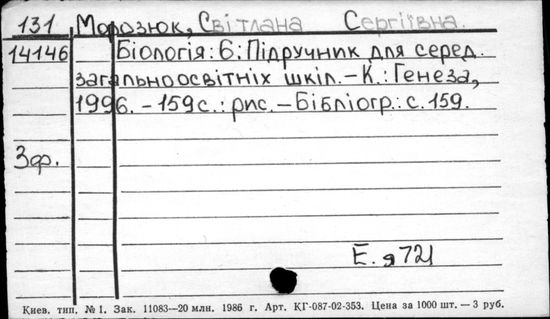 131 Морозюк, Світлана Сергіївна.
14146 Біологія: 6: Підручник для серед.
загальноосвітніх шкіл. – К.: Генеза,
1996. – 159 с.: рис. – Бібліогр.: с. 159.
3ф.
Е. я 721
Київ. тип. № 1. Зак. 11083—20 млн. 1986 г. Арт. КГ-087-02-353. Цена за 1000 шт. — 3 руб.